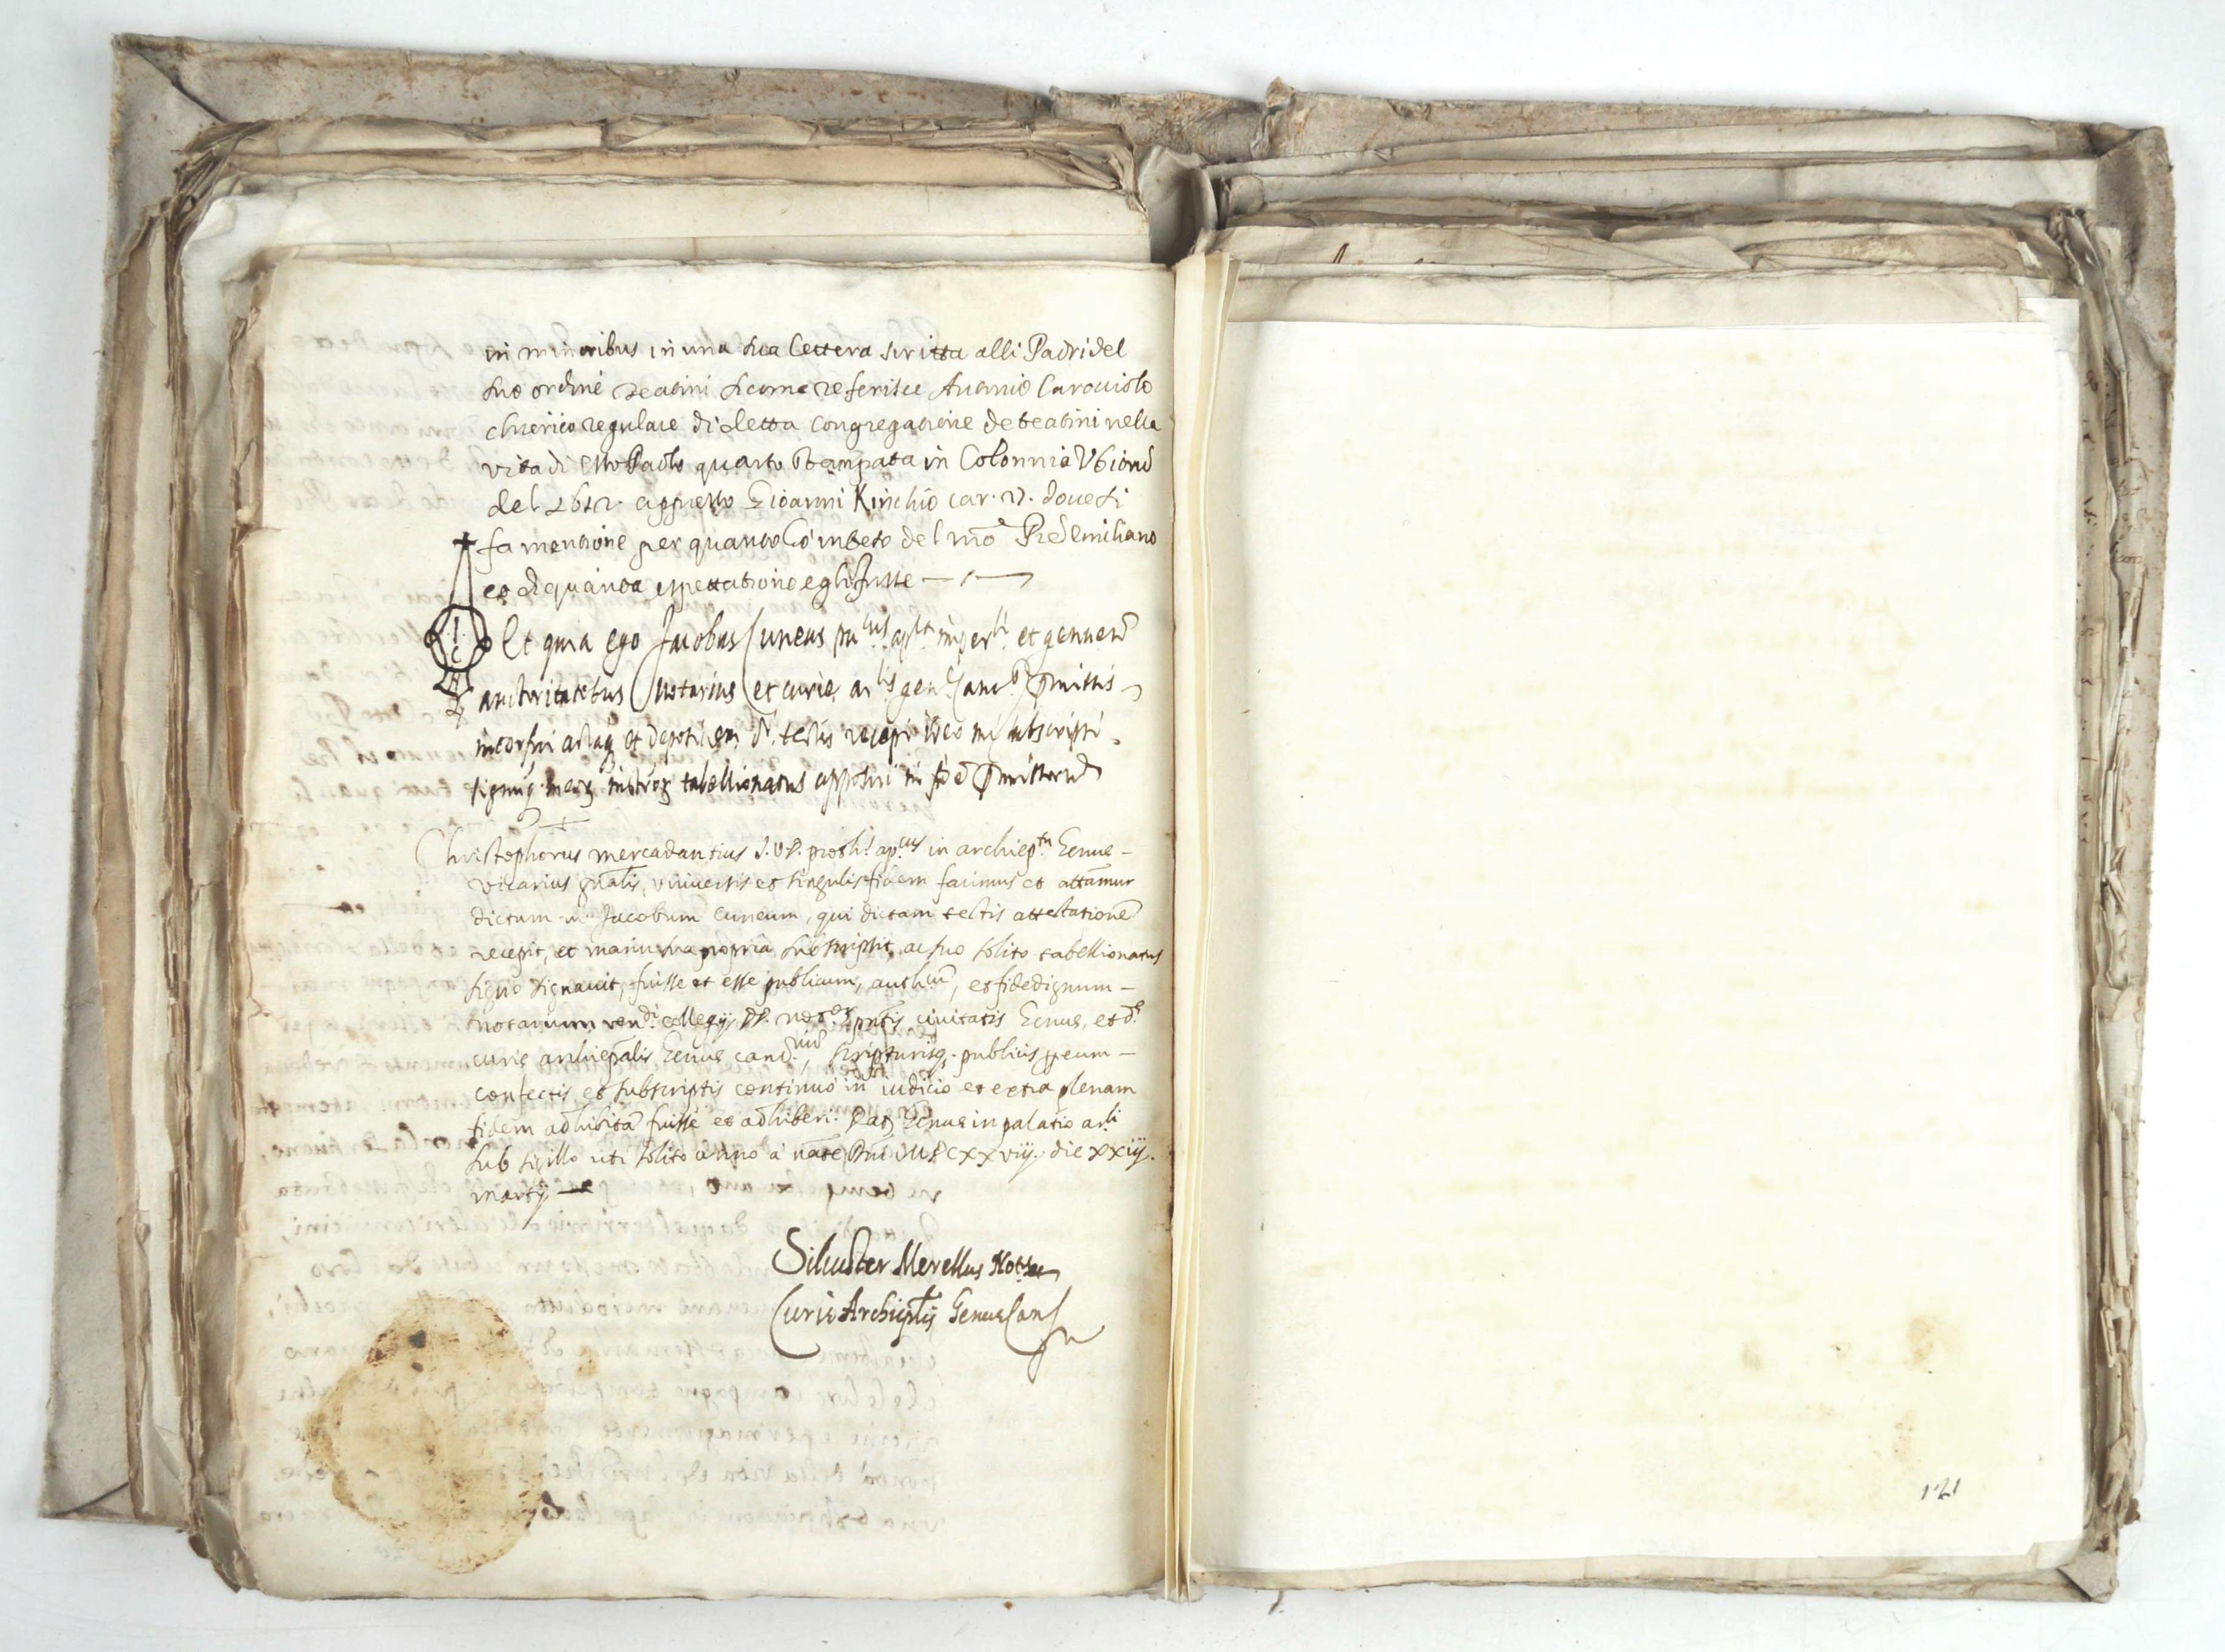 in minoribus in una sua lettera scritta alli Padri del
suo ordine Teatini sicome referisce Antonio Caracciolo
chierico regulare di detta congregatione de teatini nella
vita di esso Paolo quarto stampata in Colonnia Ubiorū
del 1612. appresso Gioanni Kinchio car. 27. dove si
fa mentione per quanto del mō Pře Emiliano
et di quanta espettatione egli fusse
I C
Et quia ego Jacobus Cuneus aplca imperli et genuen
auctoritatibus Notarius et curie arlis genē canc.s p̄missis
interfui ideo me subscripsi
tabellionatus apposui in fidē p̄missorū
Christophorus mercadantius J.V.D. proth.s ap.cus in archiep.tu Genue
vicarius gnālis, universis et singulis fidem facimus et attāmur
dictum m. Jacobum Cuneum, qui dictam testis attestationē
recepit, et manu sua propria subscripsit, ac suo solito tabellionatus
signo signavit, fuisse et esse publicum, auth.cū, et fidedignum
notarium ven.di collegij DD. not.or. pn̄tis civitatis Genue, et d.e
curie archiepālis Genue canc.riū, scripturisq. publicis per eum
confectis et subscriptis continuo in iudicio et extra plenam
fidem adhibitā fuisse et adhiberi. Dat. Genue in palatio ar.li
sub sigillo uti solito anno a nāte Dnī MDCXXVIIJ. die XXIIJ.
martij
Silvester Merellus Not.s et
Curie Archieplis Genue Canc.s
121